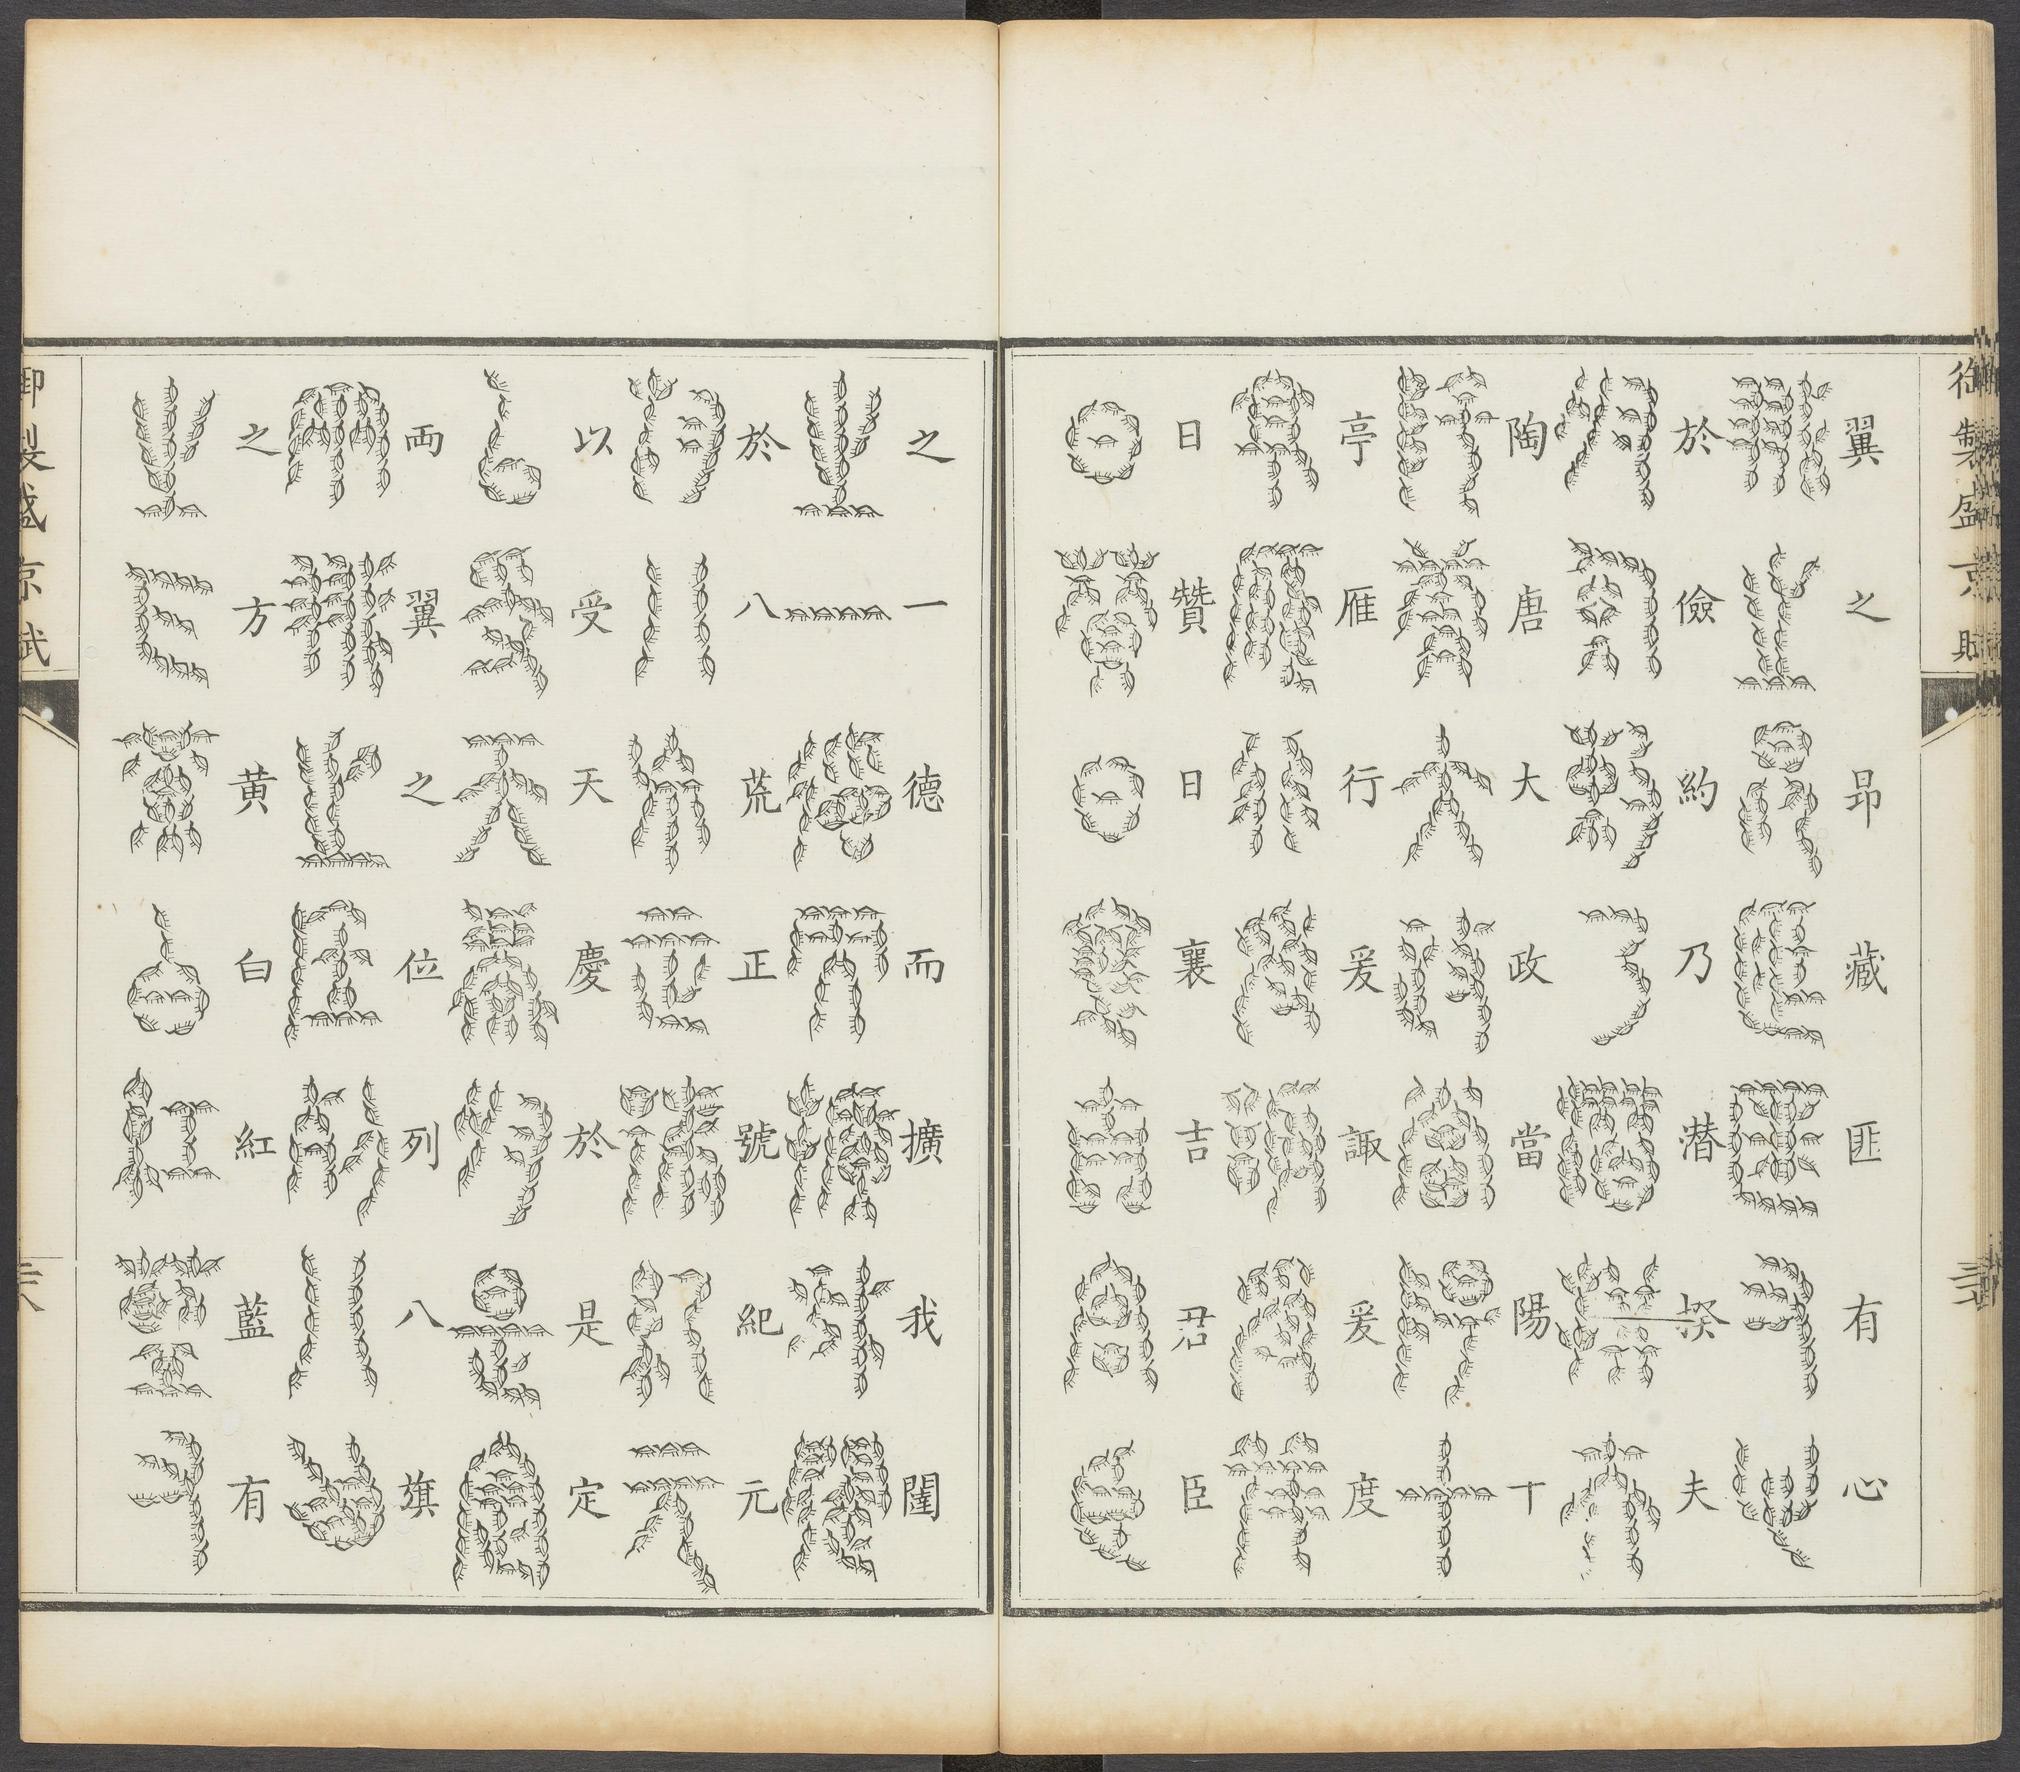 御製盛京賦
翼之昂藏匪有心
於儉約乃潜揆夫
陶唐大政當陽十
亭雁行爰諏爰度
日贊日襄吉君臣
之一德而擴我闥
於八荒正號紀元
以受天慶於是定
両翼之位列八旗
之方黄白紅藍有
御製盛京賦